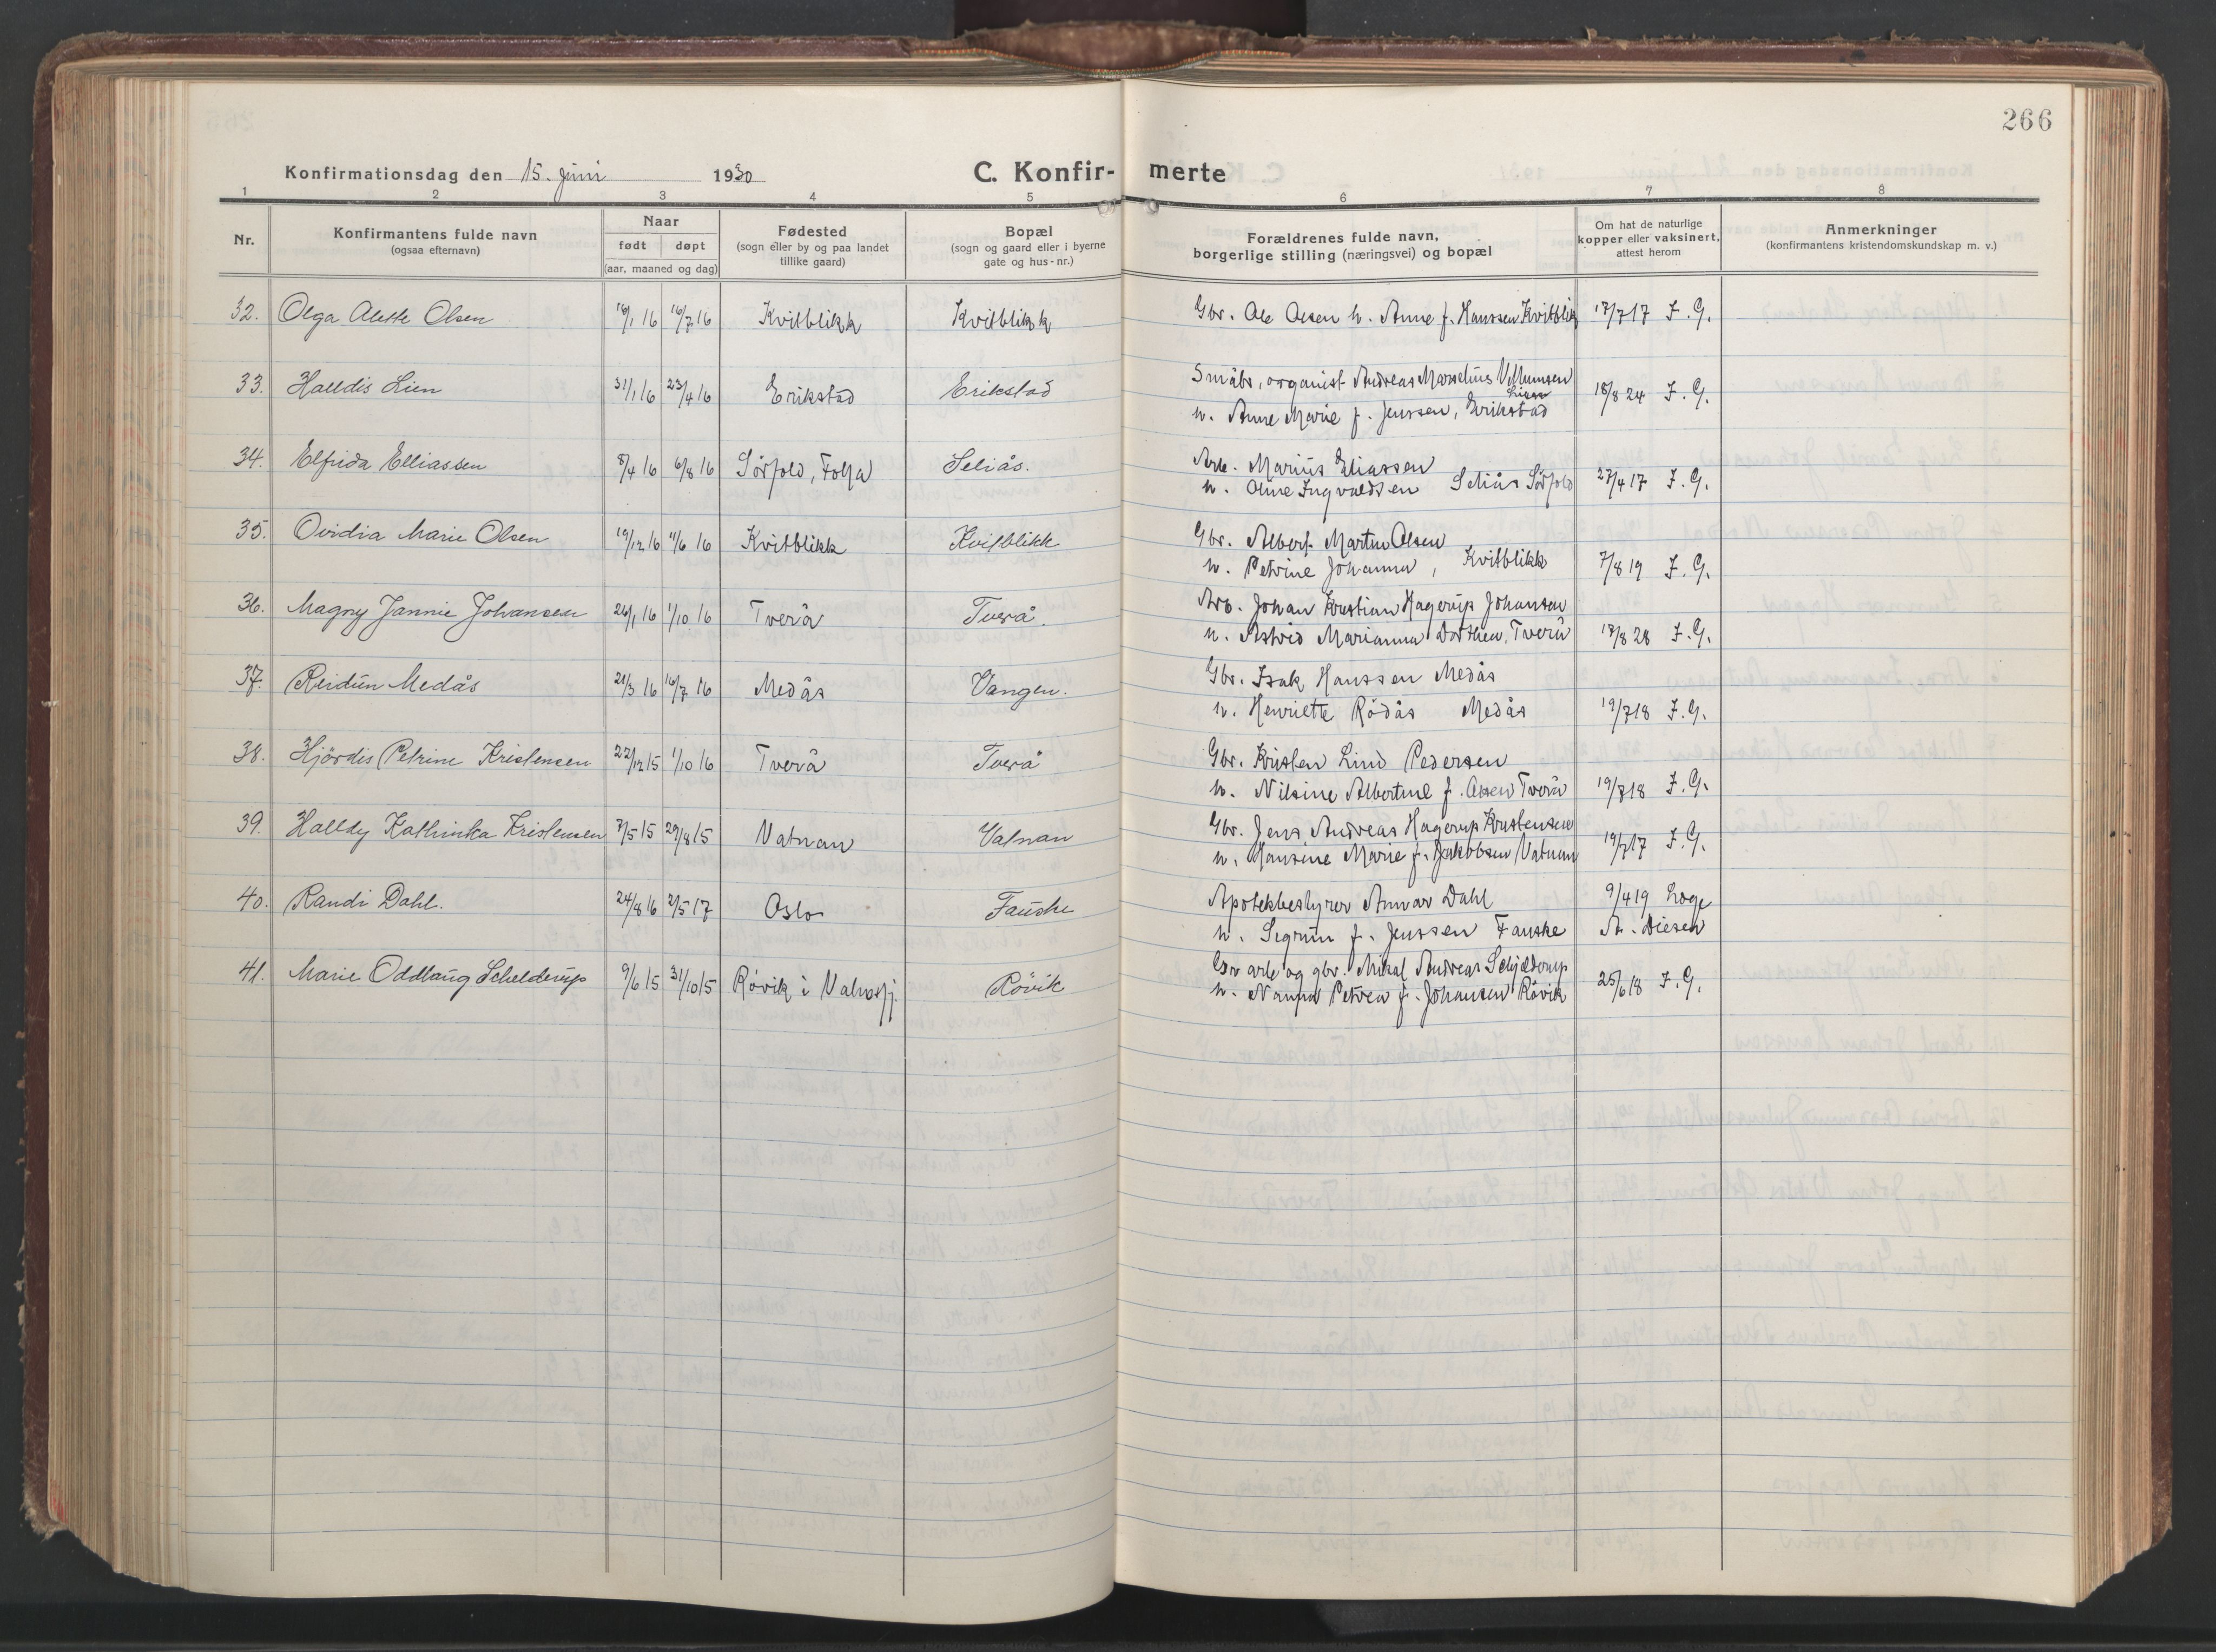 266
Konfirmationsdag den 15. juni 1930 C. Konfir- merte
1 2 3 4 5 6 7 8
Nr.
Konfirmantens fulde navn
(ogsaa efternavn)
Naar
født døpt
(aar, maaned og dag)
Fødested
(sogn eller by og paa landet
tillike gaard)
Bopæl
(sogn og gaard eller i byerne
gate og hus-nr.)
Forældrenes fulde navn,
borgerlige stilling (næringsvei) og bopæl
Om hat de naturlige
kopper eller vaksinert,
attest herom
Anmerkninger
(konfirmantens kristendomskundskap m. v.)
32. Olga Alette Olsen 16/1 16 16/7 16 Kvitblikk Kvitblikk Gbr. Ole Olsen h. Anne f. Hanssen Kvitblik 17/7 17 F. G.
33. Halldis Lien 31/1 16 23/4 16 Erikstad Erikstad Småbr, organist Andreas Marselius Villumsen
Lien
h. Anne Marie f. Jenssen, Erikstad 18/8 24 F. G.
34. Elfrida Elliassen 8/4 16 6/8 16 Sörfold, Folla Seliås. Arb. Marius Eliassen
h. Oline Ingvaldsen Seliås Sörfold 27/4 17 F. G.
35. Ovidia Marie Olsen 19/12 16 11/6 16 Kvitblikk Kvitblikk Gbr. Albert Martin Olsen
h. Petrine Johanna, Kvitblikk 7/8 19 F. G.
36. Magny Jannie Johansen 26/1 16 1/10 16 Tverå Tverå. Arb. Johan Kristian Hagerup Johansen
h. Astrid Marianna Dorthea, Tverå 17/8 28 F. G.
37. Reidun Medås 21/3 16 16/7 16 Medås Vangen. Gbr. Isak Hanssen Medås
h. Henriette Rödås Medås 19/7 18 F. G.
38. Hjördis Petrine Kristensen 22/12 15 1/10 16 Tverå Tverå Gbr. Kristen Lind Pedersen
h. Nilsine Albertine f. Olsen Tverå 19/7 18 F. G.
39. Halldy Kathinka Kristensen 7/5 15 29/8 15 Vatnan Vatnan Gbr. Jens Andreas Hagerup Kristensen
h. Hansine Marie f. Jakobsen Vatnan 19/7 17 F. G.
40. Randi Dahl. 24/8 16 2/5 17 Oslo Fauske Apotekbestyrer Annar Dahl 9/4 19 Loge
h. Sigrun f. Jenssen Fauske A. Diesen
41. Marie Oddlaug Schelderup 9/6 15 31/10 15 Røvik i Valnesfj. Rövik Grv arb og gbr. Mikal Andreas Schjelderup
h. Nanna Petrea f. Johansen Rövik 25/6 18 F. G.